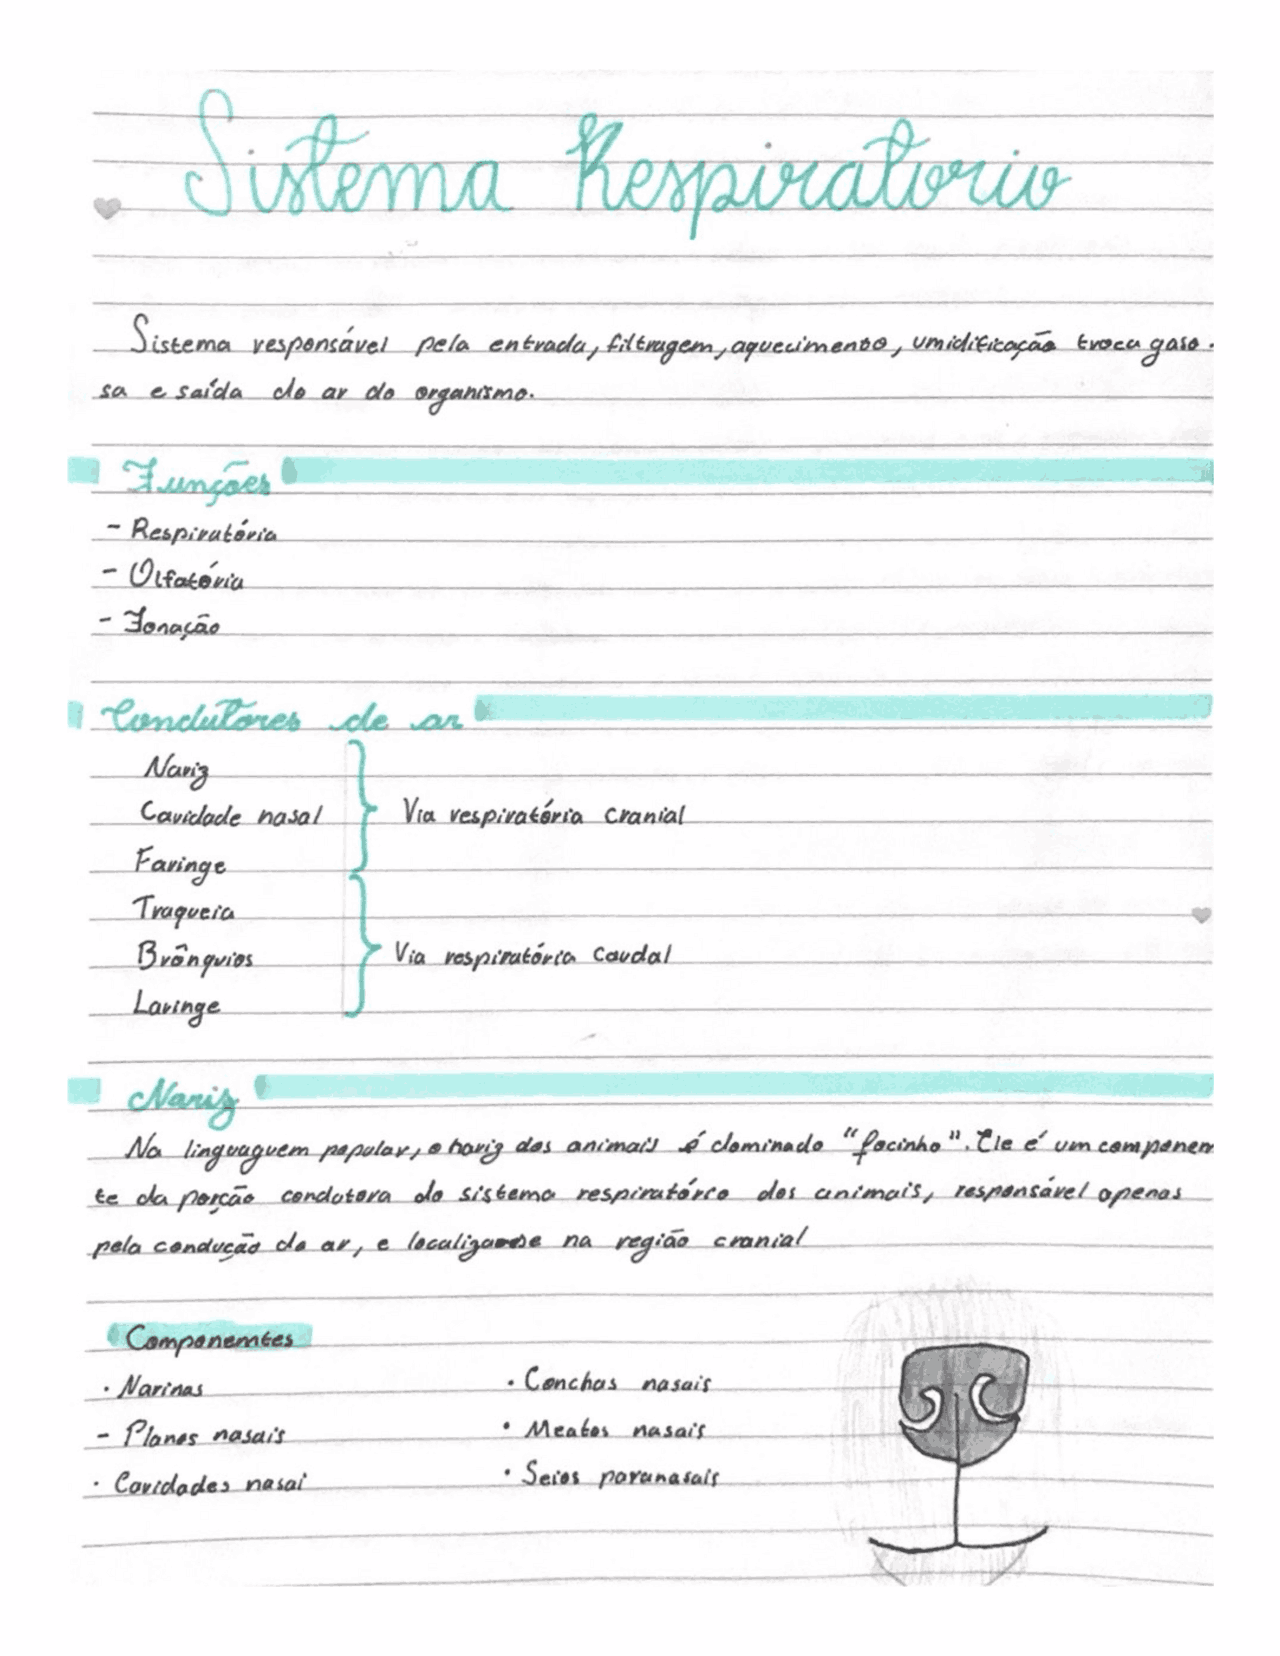 Sistema Respiratorio
Sistema responsável pela entrada, filtragem, aquecimento, umidificação troca gaso-
sa e saída do ar do organismo.
Funções
- Respiratória
- Olfatória
- Fonação
Condutores de ar
Nariz
Cavidade nasal
Via respiratória cranial
Faringe
Traqueia
Brônquios
Via respiratória caudal
Laringe
Nariz
Na linguaguem popular, o nariz dos animais é dominado "focinho". Ele é um componem
te da porção condutora do sistema respiratórco dos animais, responsável apenas
pela condução do ar, e localiza-se na região cranial
Componemtes
· Narinas
- Planos nasais
· Cavidades nasai
· Conchas nasais
· Meatos nasais
· Seios paranasais